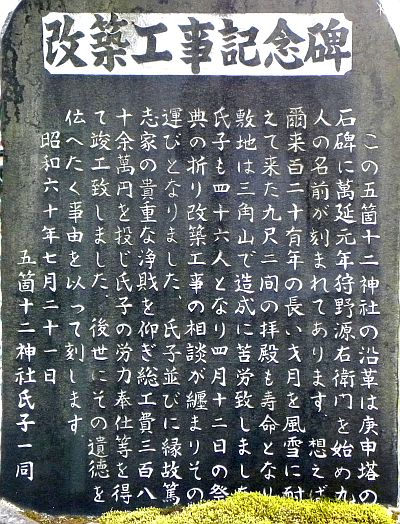 改築工事記念碑
この五箇十二神社の沿革は庚申塔の
石碑に萬延元年狩野源右衛門を始め九
人の名前が刻まれてあります．想えば
爾来百二十有年の長い才月を風雪に耐
えて来た九尺二間の拝殿も寿命となり
敷地は三角山で造成に苦労致しました
氏子も四十六人となり四月十二日の祭
典の折り改築工事の相談が纏まりその
運びとなりました、氏子並びに縁故篤
志家の貴重な浄財を仰ぎ総工費三百八
十余萬円を投じ氏子の労力奉仕等を得
て竣工致しました、後世にその遺徳を
伝へたく事由を以って刻します
昭和六十年七月二十一日
五箇十二神社氏子一同